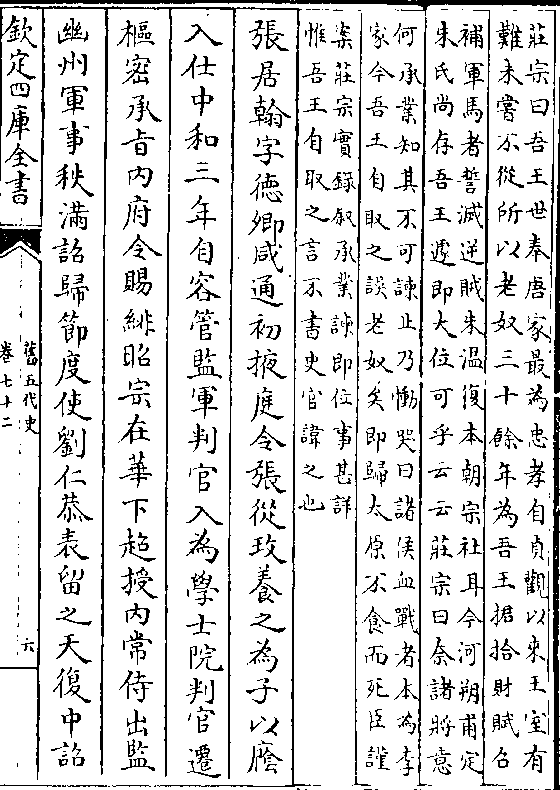 莊宗曰吾王世奉唐家最為忠孝自貞觀以來王室有
難未嘗不從所以老奴三十餘年為吾王捃拾財賦召
補軍馬者誓滅逆賊朱温復本朝宗社耳今河朔甫定
朱氏尚存吾王遽即大位可乎云云莊宗曰奈諸將意
何承業知其不可諫止乃慟哭曰諸侯血戰者本為李
家今吾王自取之誤老奴矣即歸太原不食而死臣謹
案莊宗實錄敘承業諫即位事甚詳
惟吾王自取之言不書史官諱之也
張居翰字德卿咸通初掖庭令張從玫養之為子以廕
入仕中和三年自容管監軍判官入為學士院判官遷
樞密承旨內府令賜緋昭宗在華下超授內常侍出監
幽州軍事秩滿詔歸節度使劉仁恭表留之天復中詔
欽定四庫全書
舊五代史
卷七十二
六